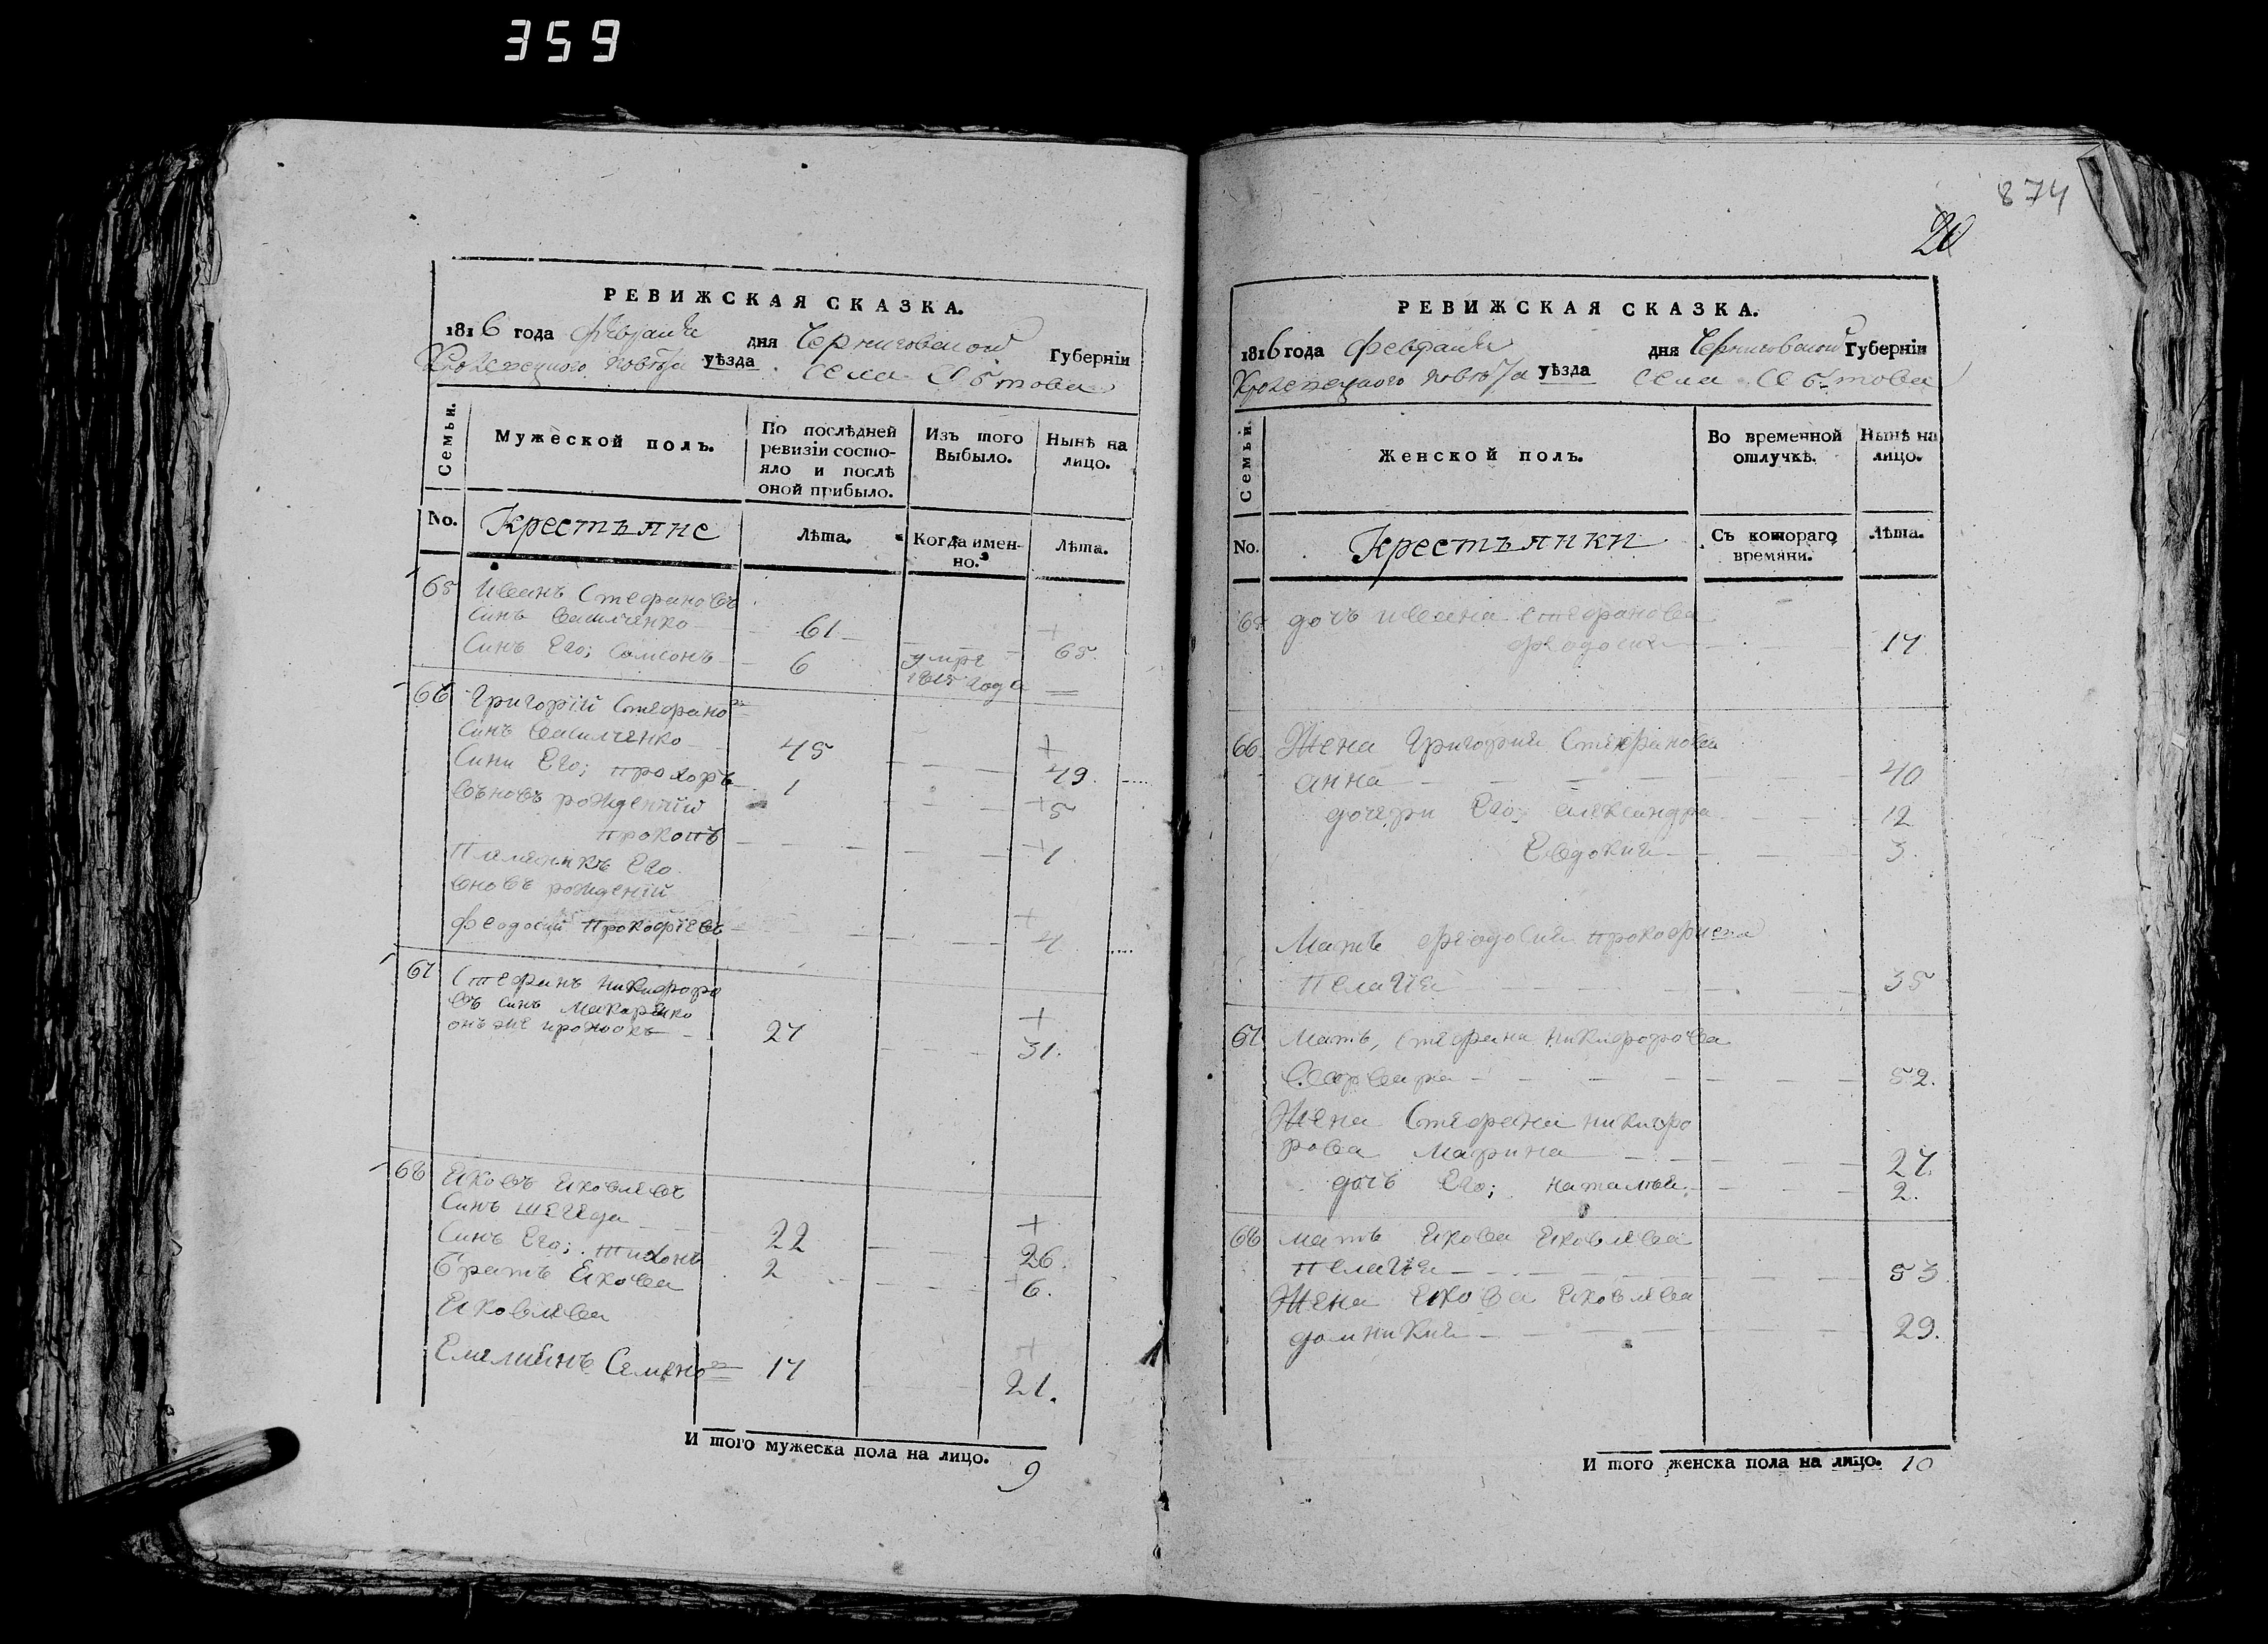 359
РЕВИЖСКАЯ СКАЗКА.
1816 года февраля дня Черниговской Губерніи
Кролевецкого повѣта уѣзда села Обтова
Семьи.
Мужеской полъ.
По послѣдней ревизіи состо-
яло и послѣ
оной прибыло.
Изъ того
Выбыло.
Нынѣ на
лицо.
No.
Крестьяне
Лѣта.
Когда имен-
но.
Лѣта.
65 Иванъ Стефановъ
синъ Василченко 61 65.
Синъ Его; Самсонъ 6 умре
1815 года
66 Григорій Стефано=
Синъ Василченко 45 49.
Сини Его; Прохоръ 1 5
въновъ рожденній
Прокопъ 1
Племяникъ Его
вновъ рожденій
Феодосій Прокофіевъ 4
67 Стефанъ Никифоро
въ синъ Макаренко
онъ же 27 31.
68 Яковъ Яковлевъ
Синъ Шегеда 22 26.
Синъ Его; Тихонъ 2 6.
Братъ Якова
Яковлева
Емелиянъ Семено= 17 21.
И того мужеска пола на лицо. 9
874
20
РЕВИЖСКАЯ СКАЗКА.
1816 года февраля дня Черниговской Губерніи
Кролевецкого повѣта уѣзда села Обтова
Семьи.
Женской полъ.
Во временной
отлучкѣ.
Нынѣ на
лицо.
No.
Крестьянки
Съ котораго
времяни.
Лѣта.
65 дочъ Ивана Стефанова
Феодосия 17
66 Жена Григория Стефанова
Анна 40
дочери Его; Александра 12
Евдокия 3.
Мать Феодосия Прокофиева
Пелагия 35
67 Мать, Стефана Никифорова
Варвара 52.
Жена Стефана Никифо
рова Марина 27.
дочь Его; Наталья 2.
68 мать Якова Яковлева
Пелагия 53
Жена Якова Яковлева
Домникия 29.
И того женска пола на лицо. 10